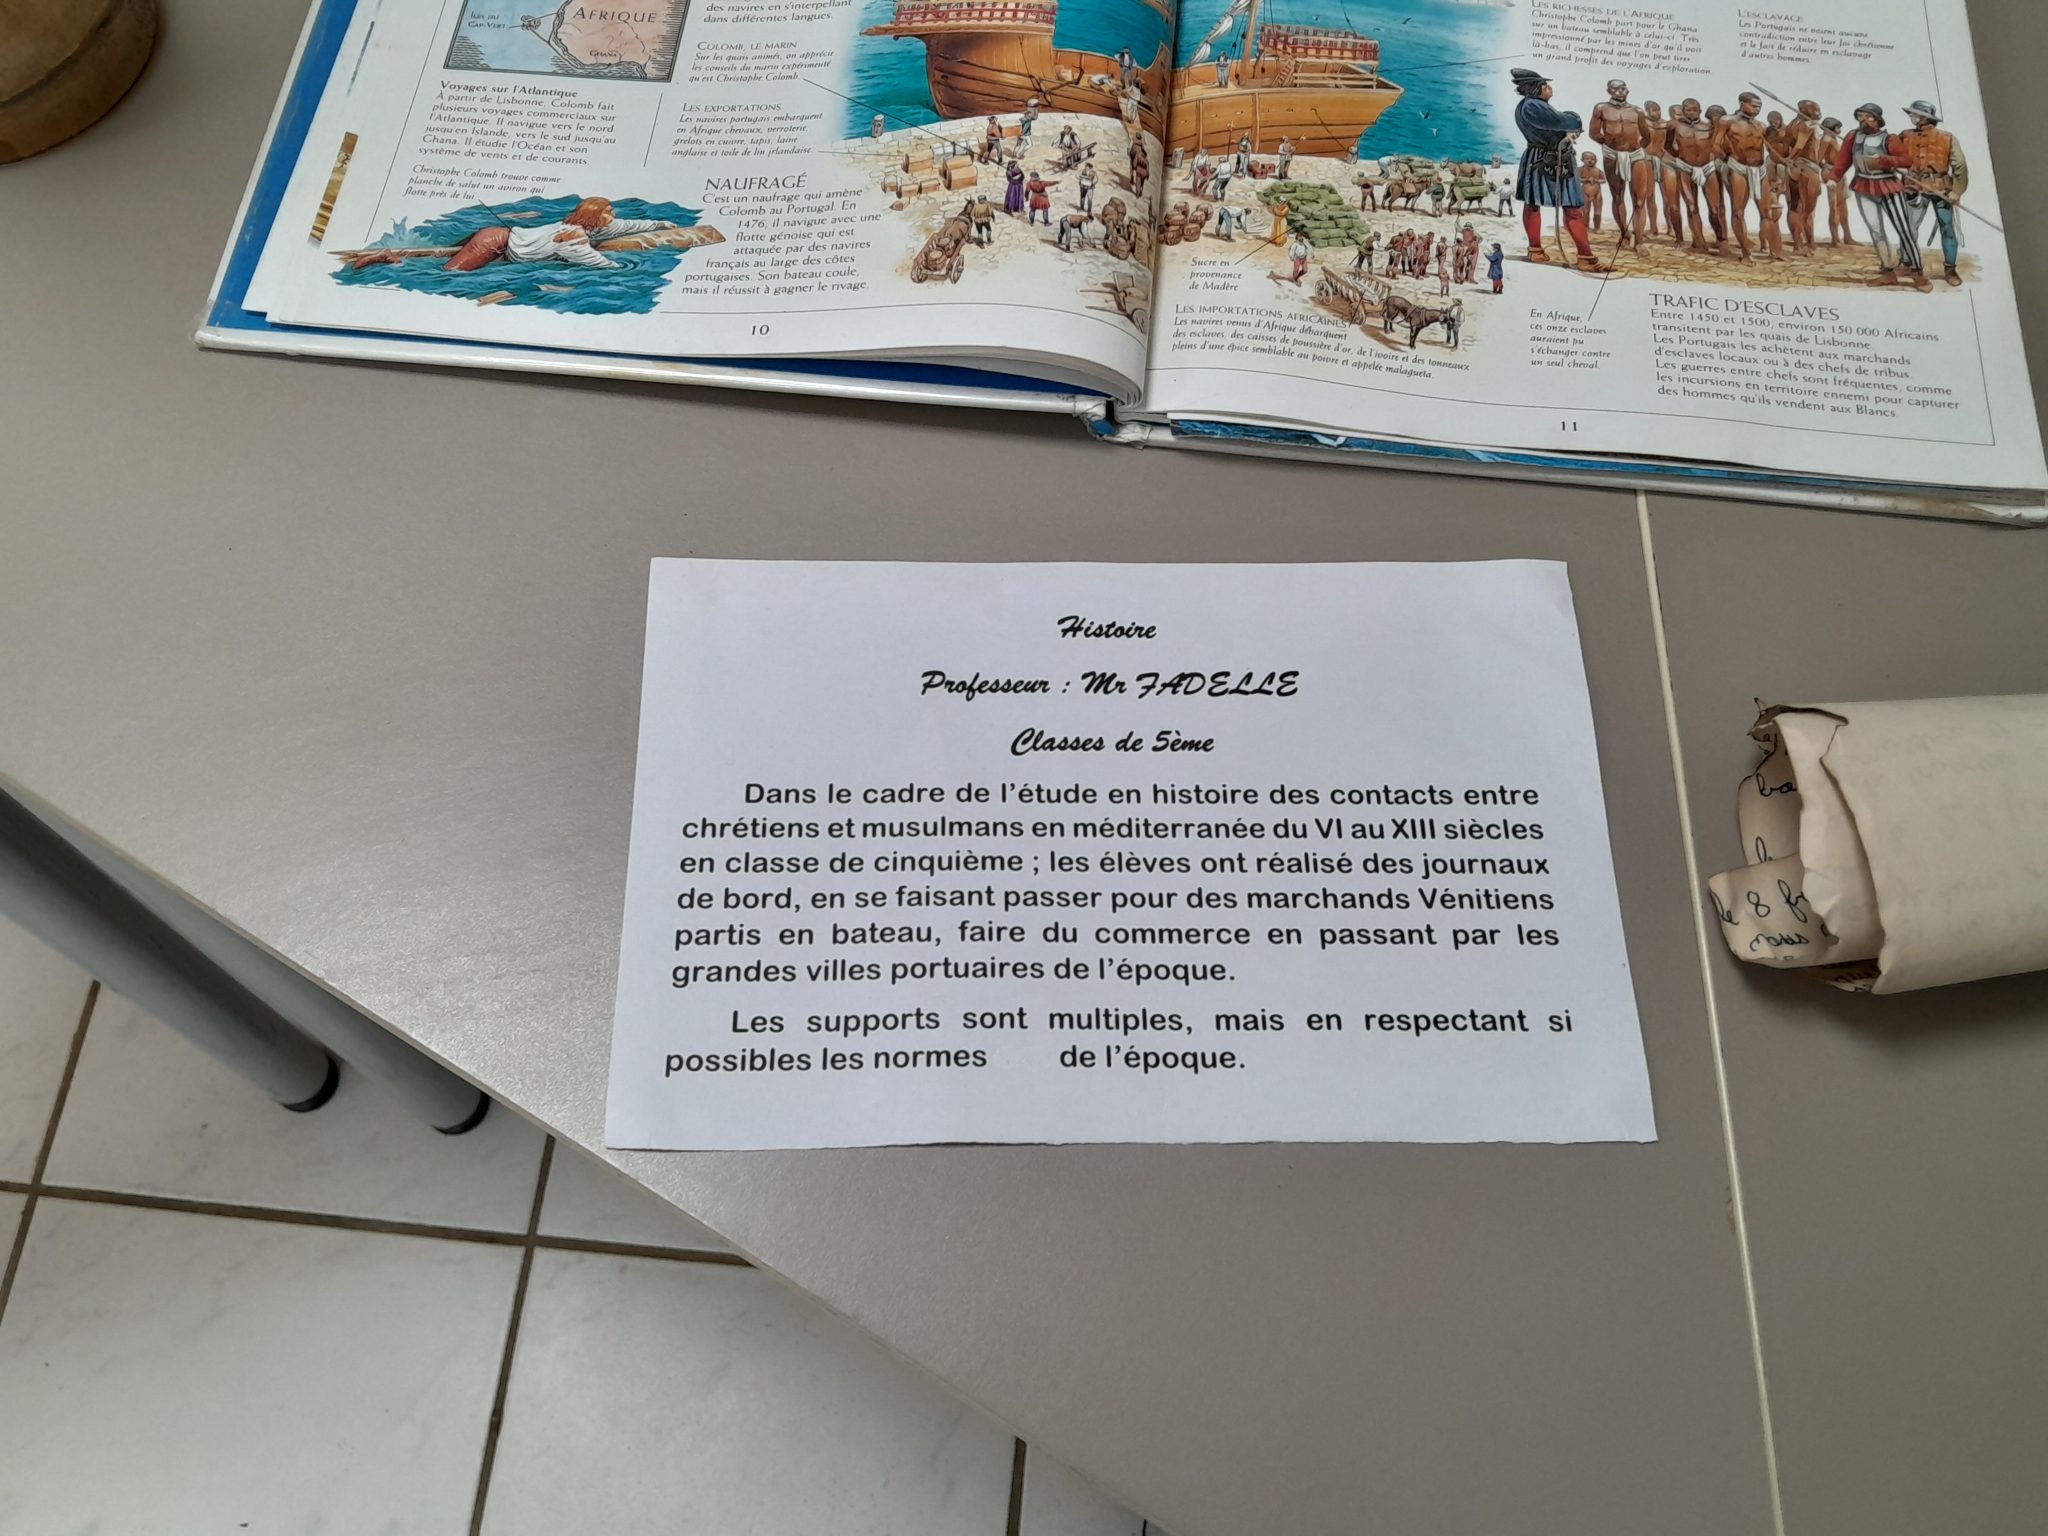 ÎLES DU
CAP-VERT
AFRIQUE
GHANA
Voyages sur l'Atlantique
À partir de Lisbonne, Colomb fait
plusieurs voyages commerciaux sur
l'Atlantique. Il navigue vers le nord
jusqu'en Islande, vers le sud jusqu'au
Ghana. Il étudie l'Océan et son
système de vents et de courants.
Christophe Colomb trouve comme
planche de salut un aviron qui
flotte près de lui.
des navires en s'interpellant
dans différentes langues.
COLOMB, LE MARIN
Sur les quais animés, on apprécie
les conseils du marin expérimenté
qu'est Christophe Colomb.
LES EXPORTATIONS
Les navires portugais embarquent
en Afrique chevaux, verroterie,
grelots en cuivre, tapis, laine
anglaise et toile de lin irlandaise.
NAUFRAGÉ
C'est un naufrage qui amène
Colomb au Portugal. En
1476, il navigue avec une
flotte génoise qui est
attaquée par des navires
français au large des côtes
portugaises. Son bateau coule,
mais il réussit à gagner le rivage.
10
LES RICHESSES DE L'AFRIQUE
Christophe Colomb part pour le Ghana
sur un bateau semblable à celui-ci. Très
impressionné par les mines d'or qu'il voit
là-bas, il comprend que l'on peut tirer
un grand profit des voyages d'exploration.
L'ESCLAVAGE
Les Portugais ne voient aucune
contradiction entre leur foi chrétienne
et le fait de réduire en esclavage
d'autres hommes.
Sucre en
provenance
de Madère
LES IMPORTATIONS AFRICAINES
Les navires venus d'Afrique débarquent
des esclaves, des caisses de poussière d'or, de l'ivoire et des tonneaux
pleins d'une épice semblable au poivre et appelée malagueta.
En Afrique,
ces onze esclaves
auraient pu
s'échanger contre
un seul cheval.
TRAFIC D'ESCLAVES
Entre 1450 et 1500, environ 150 000 Africains
transitent par les quais de Lisbonne.
Les Portugais les achètent aux marchands
d'esclaves locaux ou à des chefs de tribus.
Les guerres entre chefs sont fréquentes, comme
les incursions en territoire ennemi pour capturer
des hommes qu'ils vendent aux Blancs.
11
Histoire
Professeur : Mr FADELLE
Classes de 5ème
Dans le cadre de l'étude en histoire des contacts entre
chrétiens et musulmans en méditerranée du VI au XIII siècles
en classe de cinquième ; les élèves ont réalisé des journaux
de bord, en se faisant passer pour des marchands Vénitiens
partis en bateau, faire du commerce en passant par les
grandes villes portuaires de l'époque.
Les supports sont multiples, mais en respectant si
possibles les normes de l'époque.
le 8